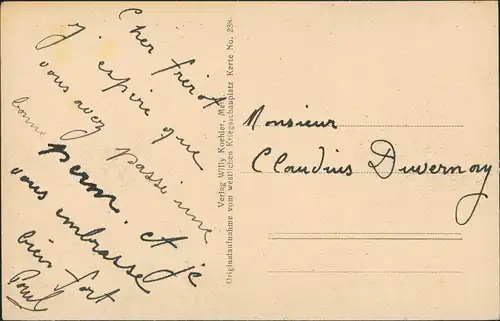 Cher frérot
J. espère que
vous avez passé une
bonne perm. et je
vous embrasse
bien fort
Paul
Verlag Willy Koehler, Metz
Originalaufnahme vom westlichen Kriegsschauplatz Karte No. 238.
Monsieur
Claudius Duvernay